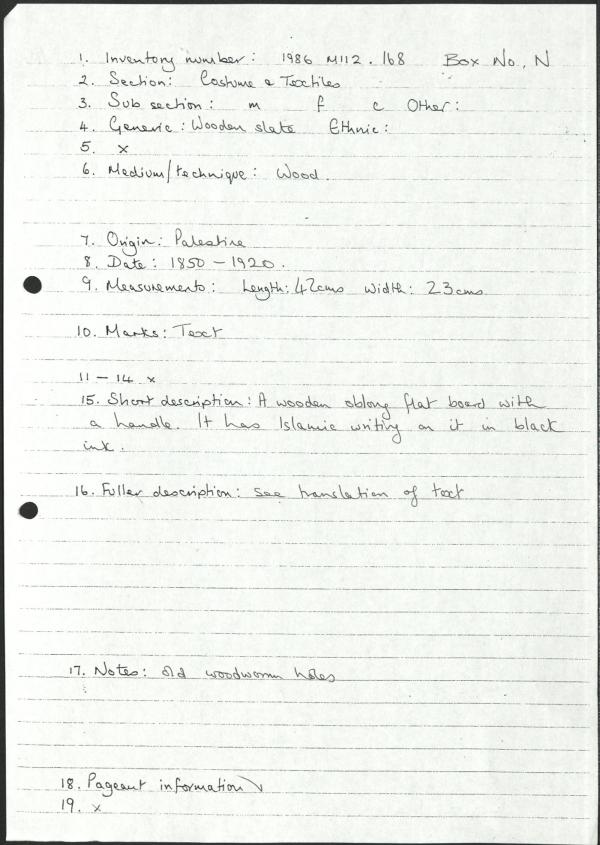 1. Inventory number: 1986 M112.168 Box No. N
2. Section: Costume & Textiles
3. Sub section: m f c Other:
4. Generic: Wooden slate Ethnic:
5. x
6. Medium/technique: Wood.
7. Origin: Palestine
8. Date: 1850 - 1920.
9. Measurements: Length: 42cms Width: 23cms
10. Marks: Text
11 - 14 x
15. Short description: A wooden oblong flat board with
a handle. It has Islamic writing on it in black
ink.
16. Fuller description: see translation of text
17. Notes: old woodworm holes
18. Pageant information
19. x